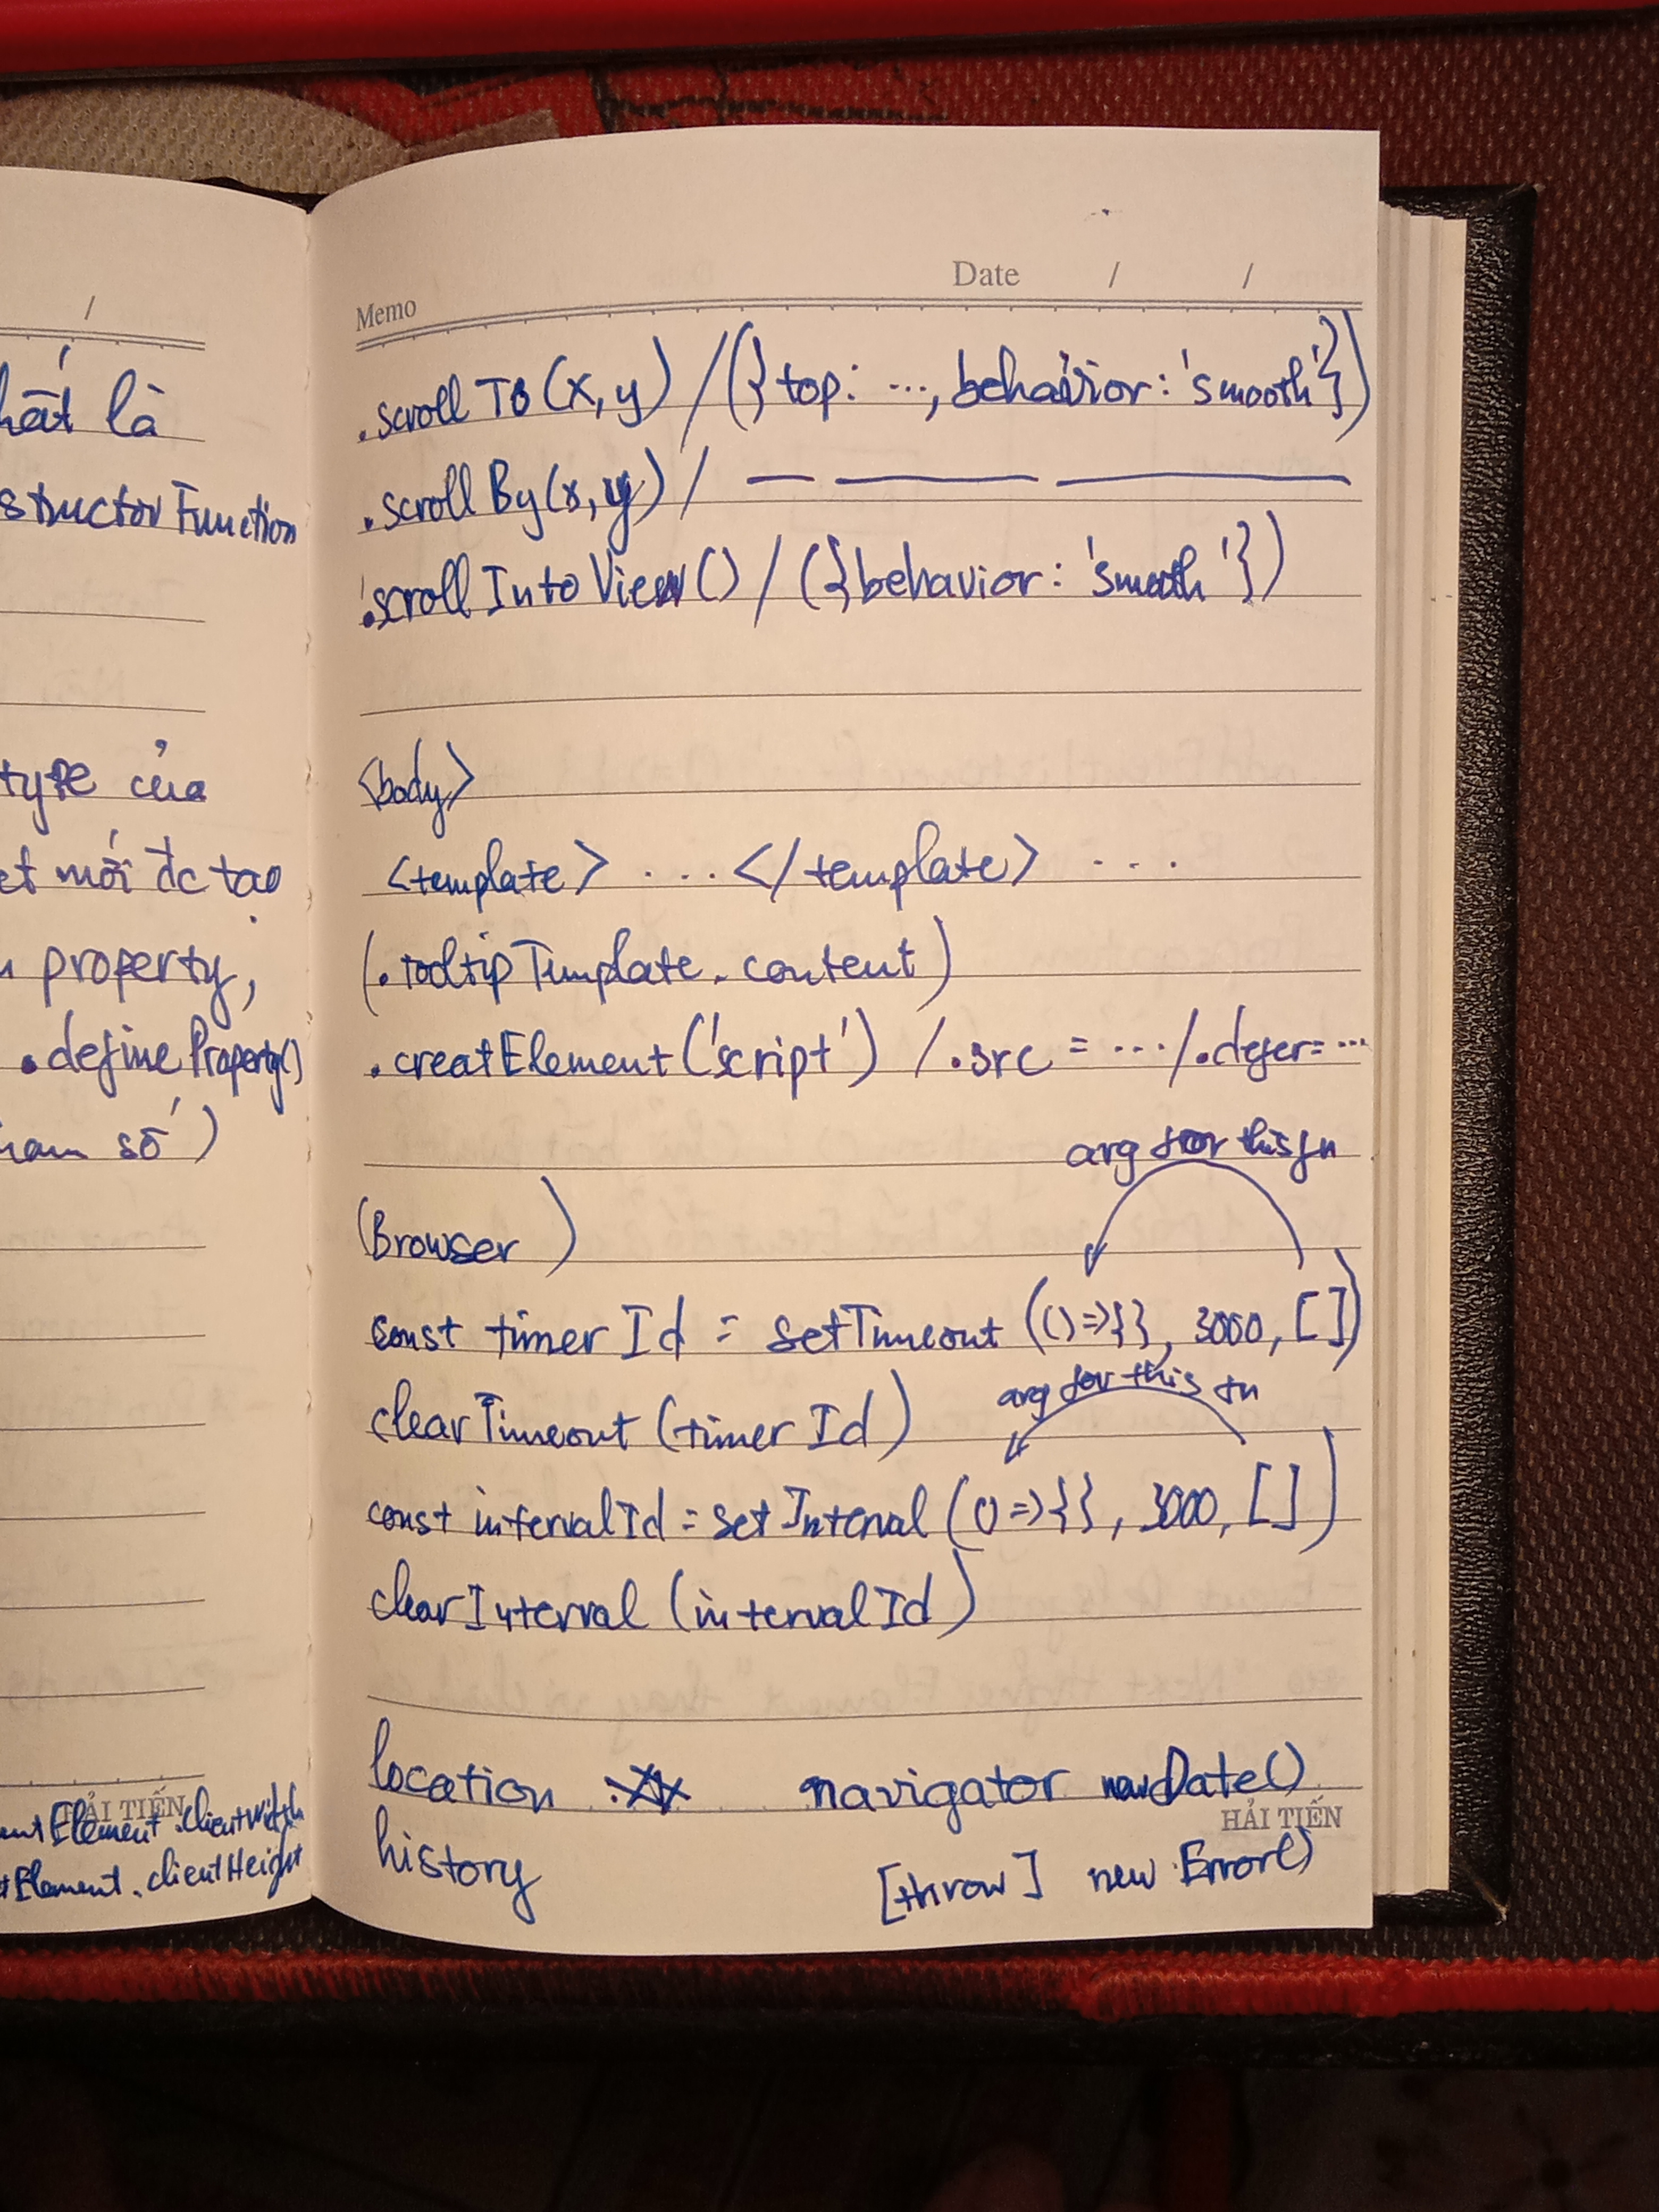 /
hất là
structor Function
type của
et mới đc tạo
property,
.defineProperty()
ham số)
HẢI TIẾN
entElement.clientWidth
tElement.clientHeight
Memo Date / /
.scrollTo(x,y) / ({top: ..., behavior: 'smooth'})
.scrollBy(x,y) /
.scrollIntoView() / ({behavior: 'smooth'})
<body>
<template> ... </template> ...
(.tooltipTemplate.content)
.creatElement('script') /.src = .../.defer=...
arg for this fn
(Browser)
const timerId = setTimeout(()=>{}, 3000, [])
arg for this fn
clearTimeout(timerId)
const intervalId = setInterval(()=>{}, 3000, [])
clearInterval(intervalId)
location navigator new Date()
HẢI TIẾN
history [throw] new Error()